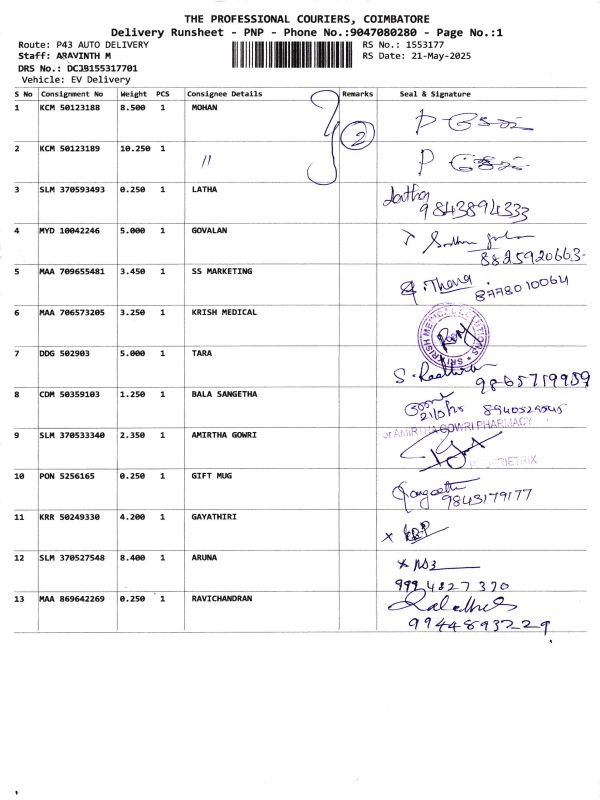 THE PROFESSIONAL COURIERS, COIMBATORE
Delivery Runsheet - PNP - Phone No.:9047080280 - Page No.:1
Route: P43 AUTO DELIVERY RS No.: 1553177
Staff: ARAVINTH M RS Date: 21-May-2025
DRS No.: DCJB155317701
Vehicle: EV Delivery
S No Consignment No Weight PCS Consignee Details Remarks Seal & Signature
1 KCM 50123188 8.500 1 MOHAN
2
2 KCM 50123189 10.250 1 11
3 SLM 370593493 0.250 1 LATHA Latha
9843894333
4 MYD 10042246 5.000 1 GOVALAN
8825920663
5 MAA 709655481 3.450 1 SS MARKETING Thana
8778010064
6 MAA 706573205 3.250 1 KRISH MEDICAL
7 DDG 502903 5.000 1 TARA
9865719959
8 CDM 50359103 1.250 1 BALA SANGETHA
8940529045
or AMIRTHA GOWRI PHARMACY
9 SLM 370533340 2.350 1 AMIRTHA GOWRI
10 PON 5256165 0.250 1 GIFT MUG Sangeetha
9843179177
11 KRR 50249330 4.200 1 GAYATHIRI
12 SLM 370527548 8.400 1 ARUNA
9994827370
13 MAA 869642269 0.250 1 RAVICHANDRAN
9944893229